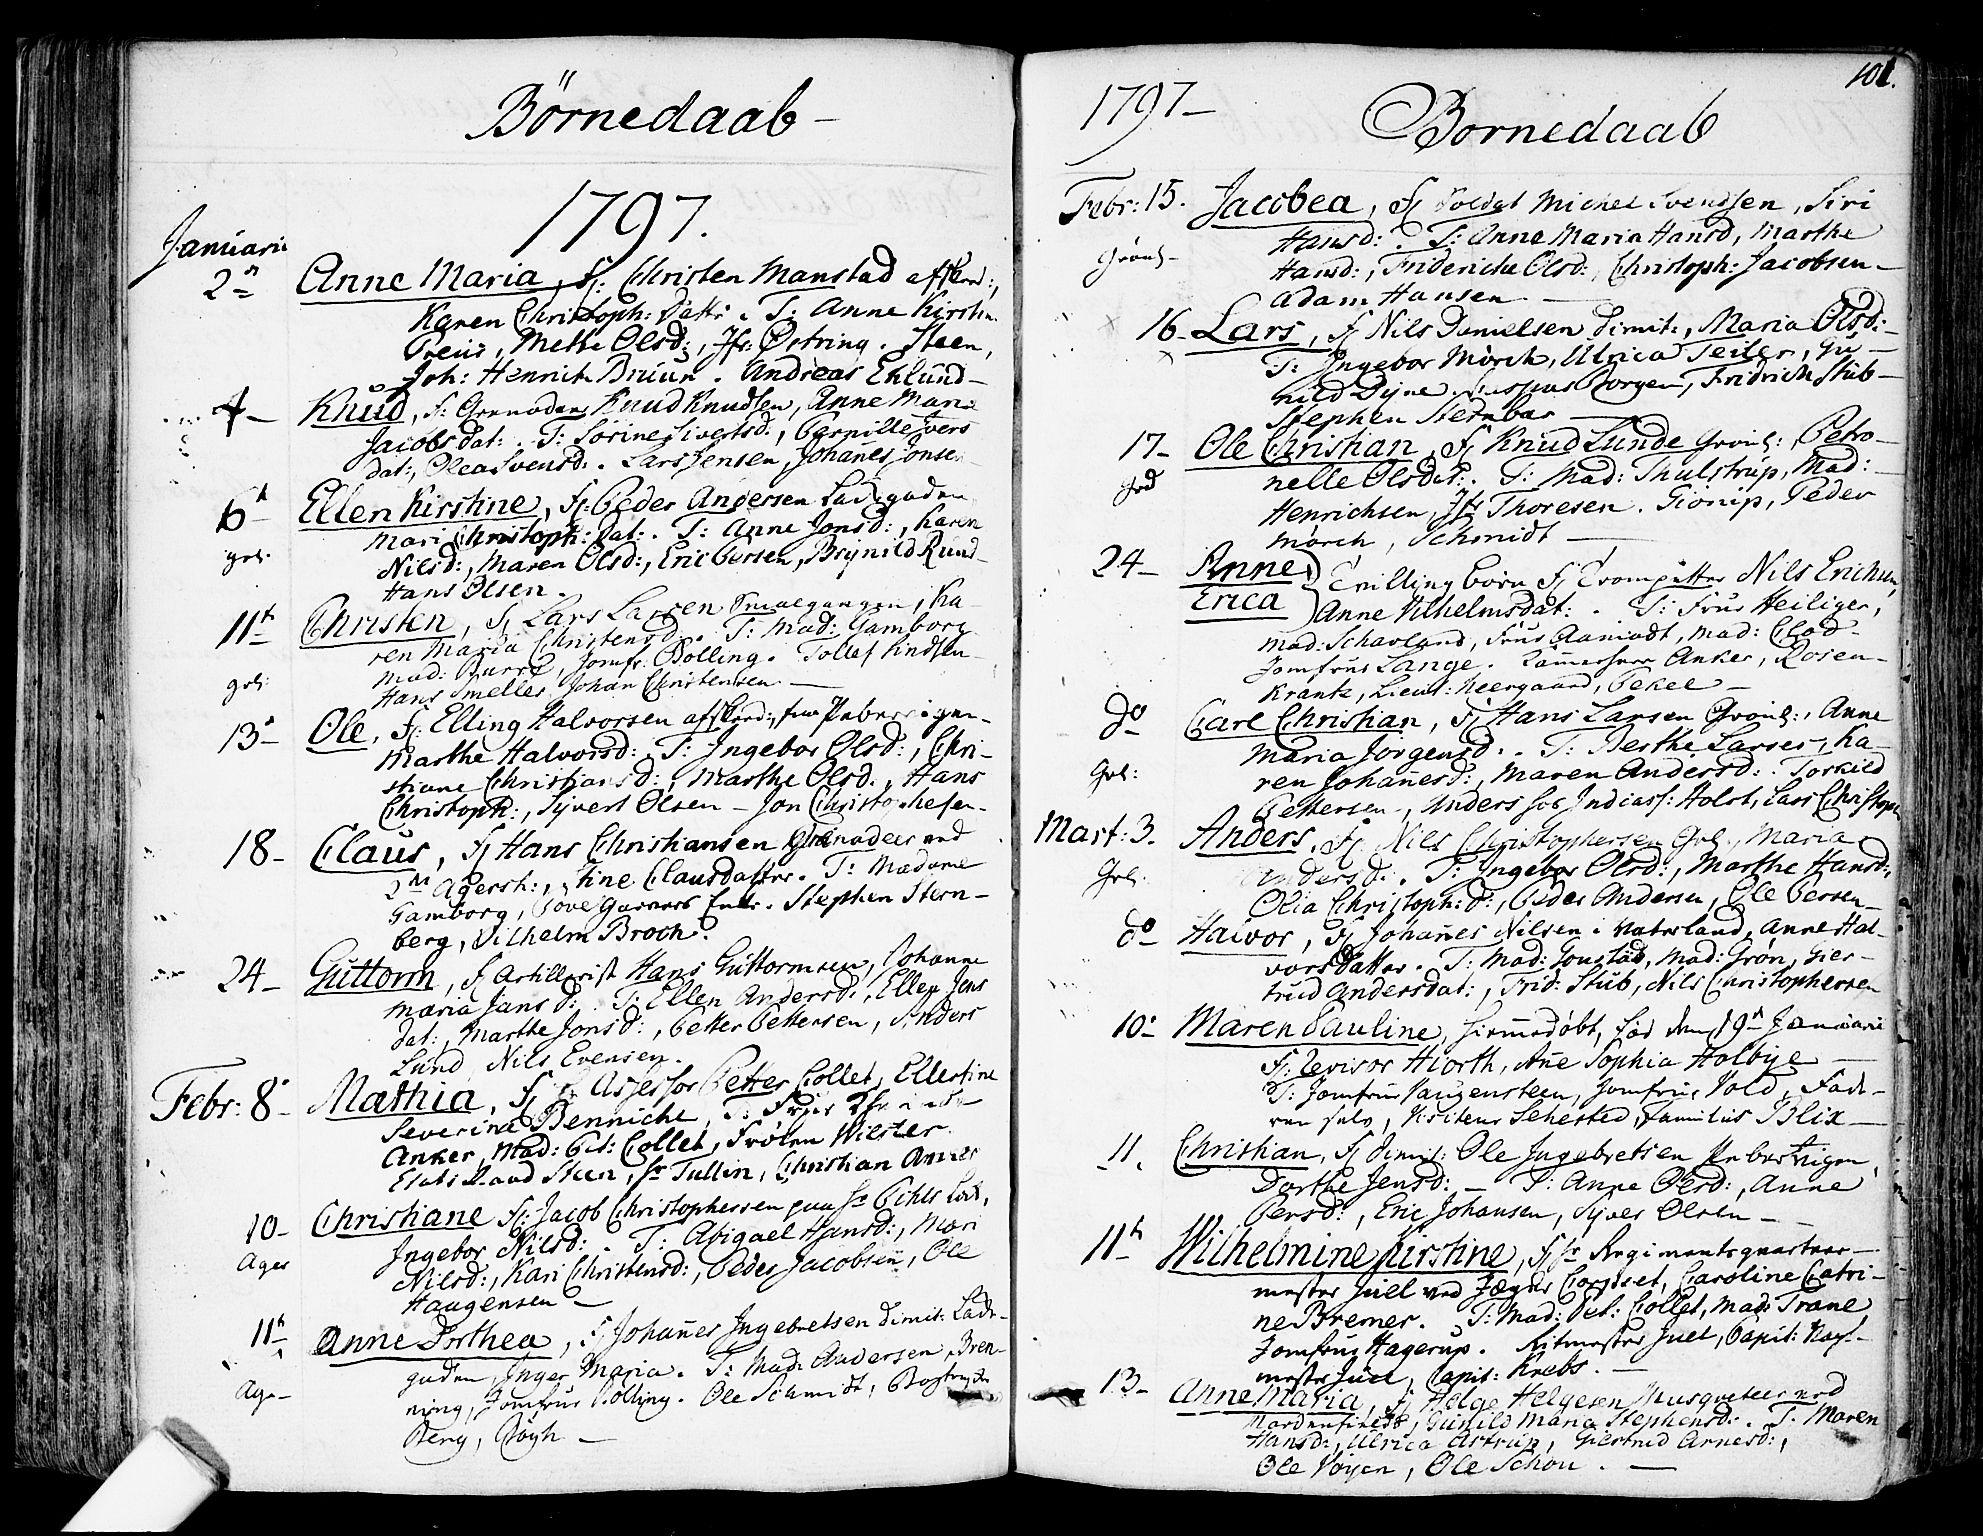 Börnedaab -
1797.
Januarii
2n Anne Maria, F: Christen Manstad afskeed:,
Karen Christoph: Datt: . T: Anne Kirstin
Preus, Methe Olsd:, Jfr: Östring. Steen,
Joh: Henrich Bruun. Andreas Eklund -
4 - Knud, F: Grenadeer Knud Knudsen, Anne Maria
Jacobsdat: . T: Sörine Sivertsd:, Pernille Ivers
dat:, Olea Svensd: . Lars Jensen, Johanes Jonsen
6 - Ellen Kirstine, F: Peder Andersen Ladegaden
Mari Christoph: Dat: . T: Anne Jonsd:, Karen
grl: Nilsd:, Maren Olsd:, Eric Persen, Brynild Rund -
Hans Olsen.
11t Christen, F: Lars Larsen, Ka-
ren Maria Christensd: . T: Mad: Gamborg
Mad: Burre, Jomfr: Bolling. Tollef Kndsen
grl: Hans Smelles Johan Christensen -
13 - Ole, F: Elling Halvorsen afskeed:, Pebervigen -
Marthe Halvorsd: . T: Ingebor Olsd:, Chri-
stiane Christiansd:, Marthe Olsd:, Hans
Christoph:, Syvert Olsen - Jon Christophersen -
18 - Claus, F: Hans Christiansen Grenadeer ved
2det Agersh:, Stine Clausdatter. T: Madame
Gamborg, Stephen Stern-
berg, Vilhelm Broch.
24 - Guttorm, F: Artillerist Hans Guttormsen, Johanne
Maria Jansd: . T: Ellen Andersd:, Ellen Jens
dat:, Marthe Jonsd:, Petter Pettersen, Anders
Lund, Nils Evensen.
Febr: 8 - Mathia, F: Hr Assessor Petter Collet, Ellestine
Severine Benniche, T: Frue
Anker, Mad: Pet: Collet, Fröken Wilster
Etats Raad Steen, Hr Tullin, Christian Ancher
10 - Christiane F: Jacob Christophersen paa Hr Pihls Löcke,
Ages Ingebor Nilsd: . T: Abigael Hansd:, Mari
Nilsd:, Kari Christensd:, Peder Jacobsen, Ole
Haagensen -
11t Anne Dorthea, F: Johanes Ingebretsen Dimit: Lade-
gaden, Inger Maria. T: Mad: Andersen, Bren-
Ag - ning, Jomfru Bolling. Ole Schmidt, Bogtrykker
Berg, Bögh -
101.
1797 - Bornedaab
Febr: 15. Jacobea, F: Soldat Michel Svendsen, Siri
Hansd: . T: Anne Maria Hansd, Marthe
Grönl - Hansd:, Frideriche Olsd:, Christoph: Jacobsen -
Adam Hansen -
16 - Lars, F: Nils Danielsen Dimit:, Maria Olsd: -
T: Ingebor Mörch, Ulrica Teiler, Gu-
nild Dyne. Rasmus Borgen, Fridrich Stub -
Stephen Sternber -
17 - Ole Christian, F: Knud Lunde Grönl:, Petro-
nelle Olsdat: . T: Mad: Thulstrup, Mad:
Henrichsen, Jfr Thoresen. Giörup, Peder
Mörch, Schmidt -
24 - Anne, Erica } Tvilling börn F: Trompetter Nils Erichsen,
Anne Vilhelmsdat: . T: Frue Heiliger,
Mad: Schavland, Frue Aamodt, Mad: Clod -
Jomfrue Lange. Kammerherre Anker, Rosen-
krantz, Lieut: Neergaard, Pekel -
do Carl Christian, F: Hans Larsen Grönl:, Anne
Maria Jörgensd: . T: Berthe Larses, Ka-
Grl: ren Johanesd:, Maren Andersd: . Torkild
Pettersen, Anders Holst, Lars Christoph
Mart: 3. Anders, F: Nils Christophersen Grl:, Maria
Grl: Andersd: . T: Ingebor Olsd:, Marthe Hansd:,
Olia Christoph: d:, Peder Andersen, Ole Persen -
do Halvor, F: Johanes Nilsen i Vaterland, Anne Hal-
vorsdatter. T: Mad: Jonstad, Mad: Grön, Gier-
trud Andersdat:, Frid: Stub, Nils Christophersen
10 - Maren Pauline, hiemmedöbt, föd den 19n Januarii
F: Revisor Hiorth, Ane Sophia Holbye -
T: Jomfrue Vaugensteen, Jomfrue Vold, Fade-
ren selv, Visiteur Sehested, Familus Blix -
11. Christian, F: Dimit: Ole Ingebretsen Pebervigen,
Dorthe Jensd: - T: Anne Persd:, Anne
Persd:, Eric Johansen, Syver Olsen -
11t Wilhelmine Kirstine, F: Hr Regimentsqvarteer -
mester Juel ved Jæger Corpset, Caroline Catri-
ne Bremer. T: Mad: Pet: Collet, Mad: Trane
Jomfrue Hagerup. Ritmester Juel, Capit:
mester Juel, Capit: Krebs. -
13 - Anne Maria, F: Helge Helgesen Musqveteer ved
Nordenfieldske, Gunild Maria Stephensd: . T: Maren
Hansd:, Ulrica Astrup, Giertrud Arnesd:,
Ole Voyen, Ole Schou . -